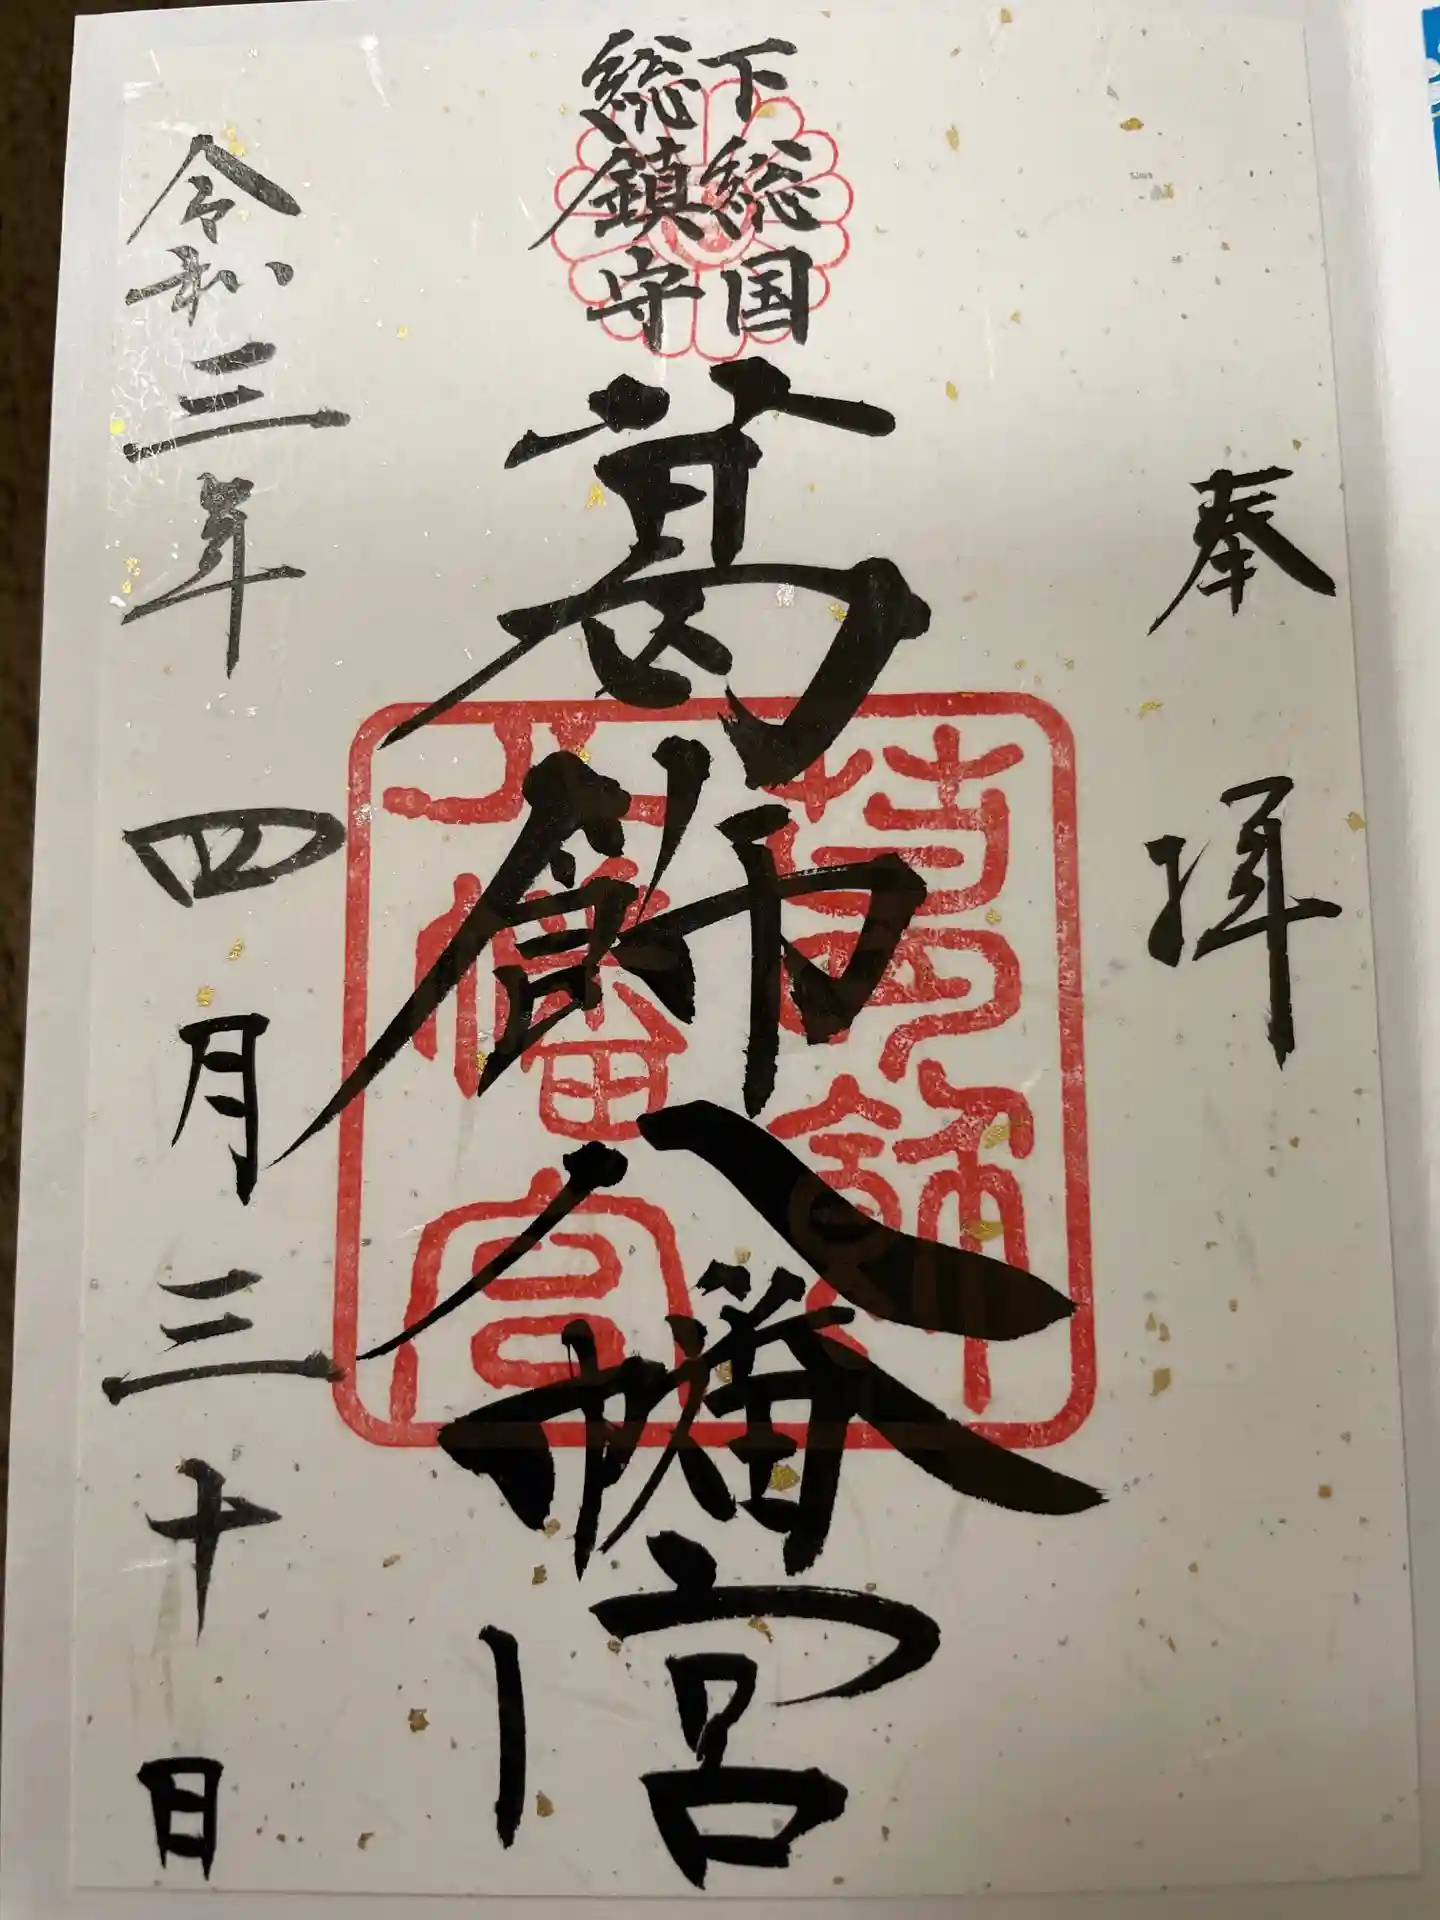 奉拝
下総国
総鎮守
葛飾八幡宮
葛飾
八幡宮
令和三年四月三十日